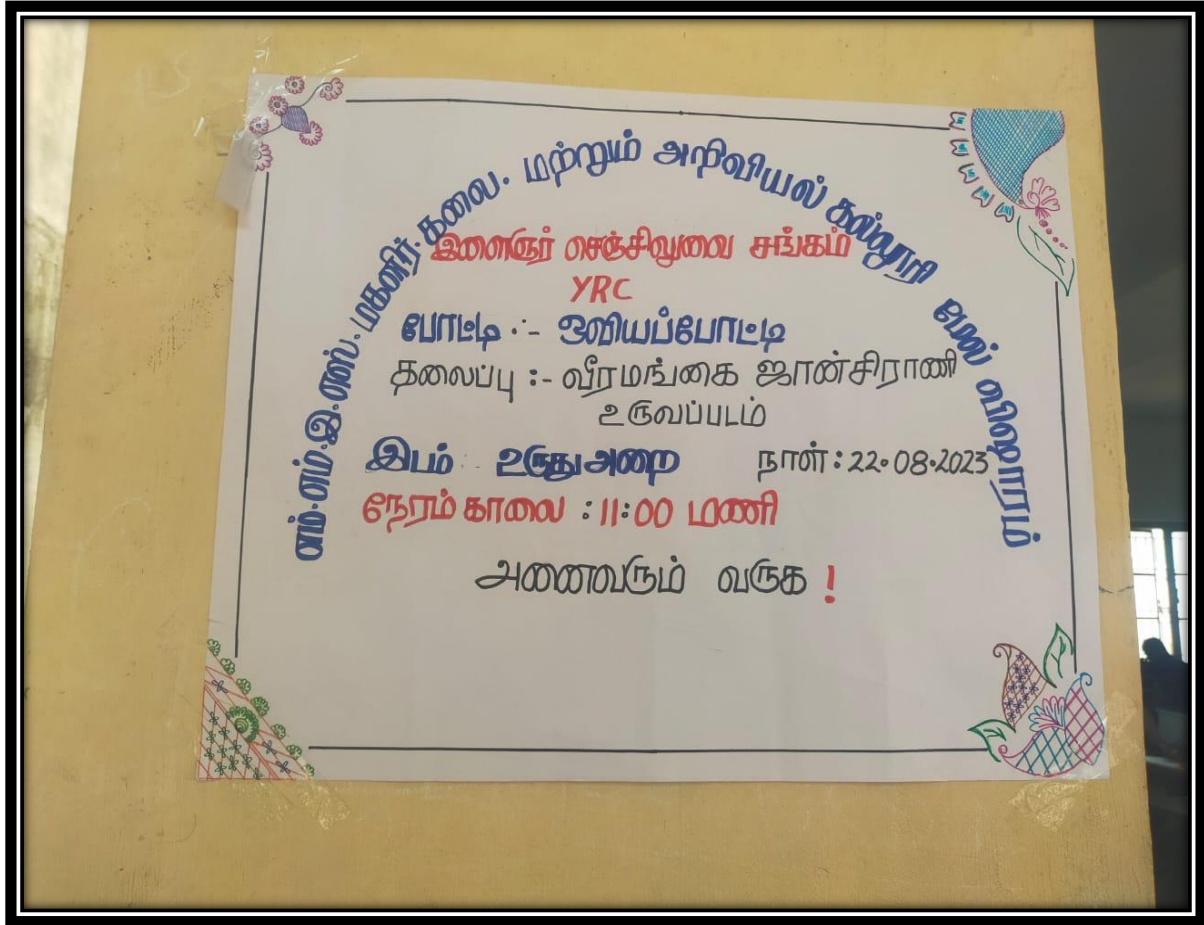 எம்.எம்.இ.எஸ். மகளிர் கலை. மற்றும் அறிவியல் கல்லூரி மேல் விஷாரம்
இளைஞர் செஞ்சிலுவை சங்கம்
YRC
போட்டி :- ஓவியப்போட்டி
தலைப்பு :- வீரமங்கை ஜான்சிராணி
உருவப்படம்
இடம் : உருது அறை நாள் : 22.08.2023
நேரம் காலை : 11:00 மணி
அனைவரும் வருக !